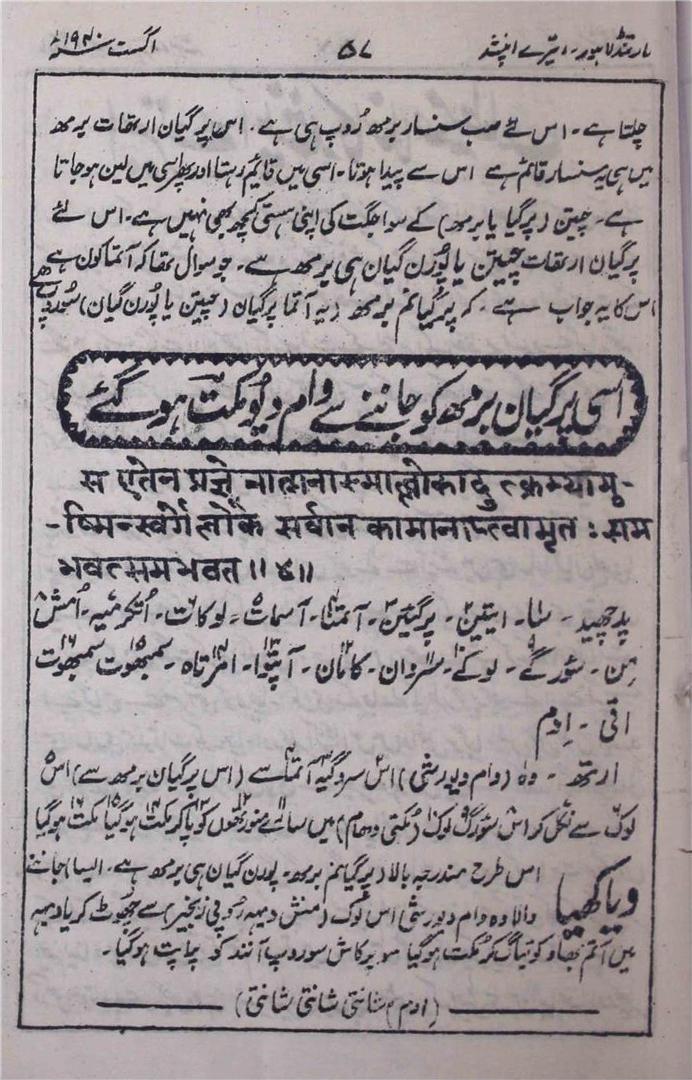 مارتنڈ لاہور۔ ایترے اپنشد ۵۷ اگست ۱۹۴۰ء
چلتا ہے۔ اس لئے سب سنسار برمھ رُوپ ہی ہے۔ اس پرگیان ارتھات برمھ
میں ہی یہ سنسار قائم ہے اس سے پیدا ہوتا۔ اسی میں قایم رہتا اور پھر اسی میں لین ہو جاتا
ہے۔ چیتن (پرگیا یا برمھ) کے سوا جگت کی اپنی ہستی کچھ بھی نہیں ہے۔ اس لئے
پرگیان ارتھات چیتن یا پُورن گیان ہی برمھ ہے۔ جو سوال تھا کہ آتما کون ہے
اس کا یہ جواب ہے۔ کہ پرگیانم برمھ (یہ آتما پرگیان (چیتن یا پُورن گیان) سُوروپ ہے
اسی پرگیان برمھ کو جاننے سے وام دیو مکت ہو گئے
स एतेन प्रज्ञे नात्मनास्माल्लोकादु त्क्रम्यामु-
-ष्मिन्स्वर्गे लोके सर्वान कामानाप्त्वामृतः सम
भवत्समभवत॥४॥
پدچھید۔ سا۔ ایتین۔ پرگیین۔ آتمنا۔ آسمات۔ لوکات۔ اُتکرمیہ۔ اُمش
مِن۔ سُورگے۔ لوکے۔ سروان۔ کامان۔ آپتوا۔ امرتاہ۔ سمبھوت سمبھوت
اتی۔ اوم
ارتھ۔ وہ (وام دیورشی) اس سروگیہ آتما سے (اس پرگیان برمھ سے) اس
لوک سے نکل کر اس سُورگ لوک (مُکتی دھام) میں سارے منورتھوں کو پا کر مکت ہو گیا مکت ہو گیا
ویاکھیا اس طرح مندرجہ بالا پرگیانم برمھ۔ پورن گیان ہی برمھ ہے۔ ایسا جاننے
والا وہ وام دیورشی اس لوک (منش دیہہ رُوپی زنجیر) سے چھوٹ کر یا دیہہ
میں آتم بھاو کو تیاگ کر مُکت ہو گیا سو پرکاش سوروپ آنند کو پراپت ہو گیا۔
(اوم) شانتی شانتی شانتی)